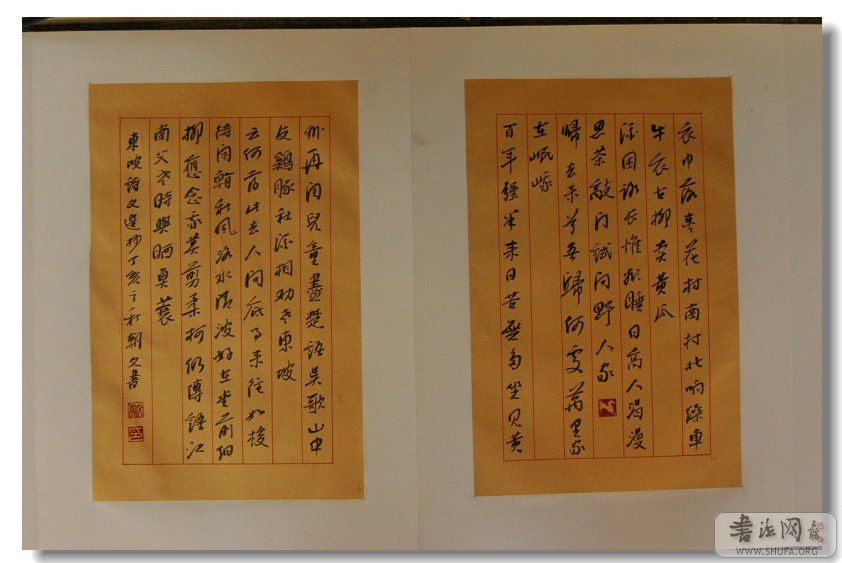 衣巾落棗花村南村北响缲車
牛衣古柳卖黄瓜
酒困路长惟欲睡日高人渴漫
思茶敲门试问野人家
歸去来兮吾歸何处萬里家
在岷峨
百年强半来日苦无多坐见黄
州再闰兒童盡楚語吴歌山中
友鷄豚社酒相劝老東坡
云何當此去人间底事来往如梭
待闲看秋风洛水清波好在堂前细
柳應念我莫剪柔柯仍傳語江
南父老時與晒蓑
東坡詩文選抄丁亥之秋朝文書
書法网
WWW.SHUFA.ORG